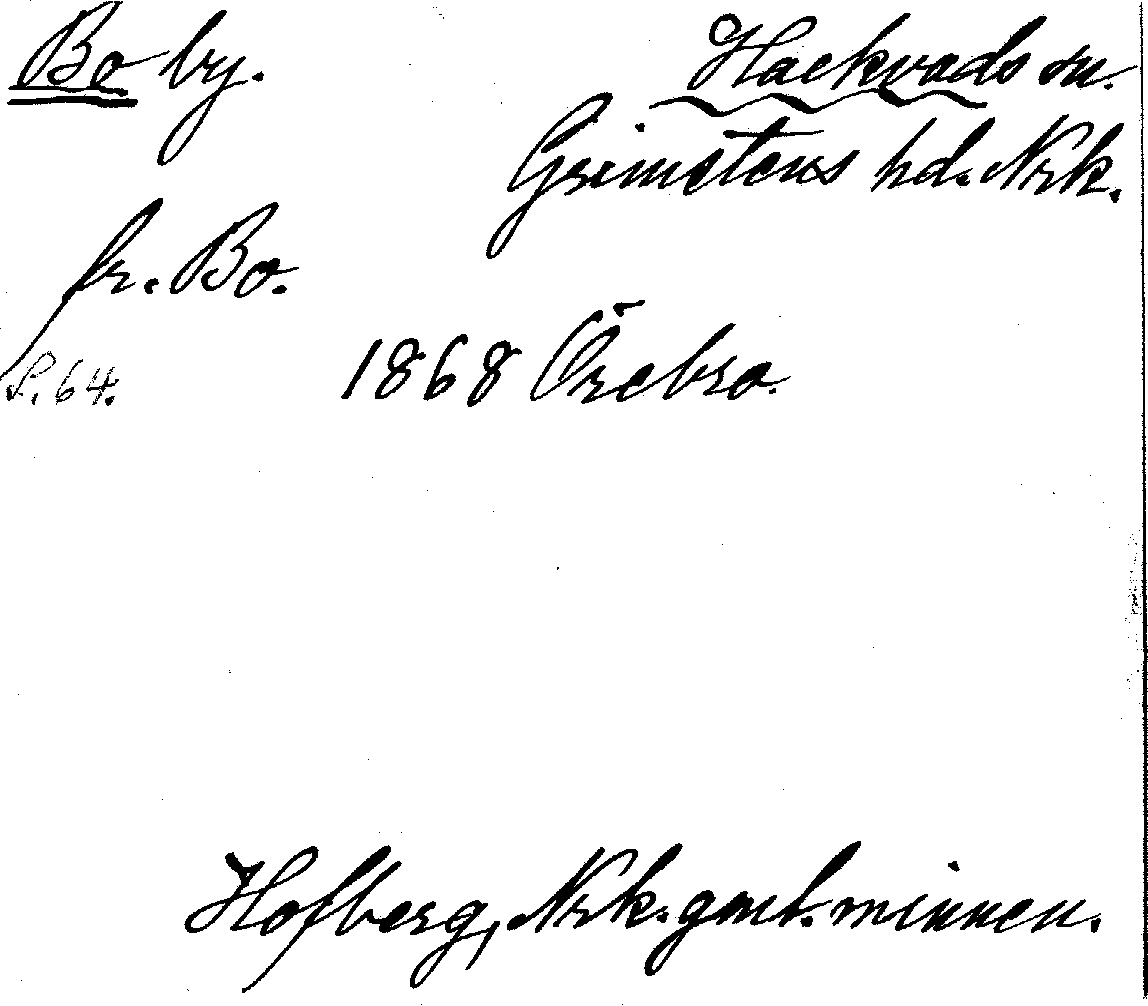 Bo by.
Hackvads sn.
Grimstens hd. Nrk.
fr. Bo.
S. 64.
1868 Örebro.
Hofberg, Nrk. gml. minnen.